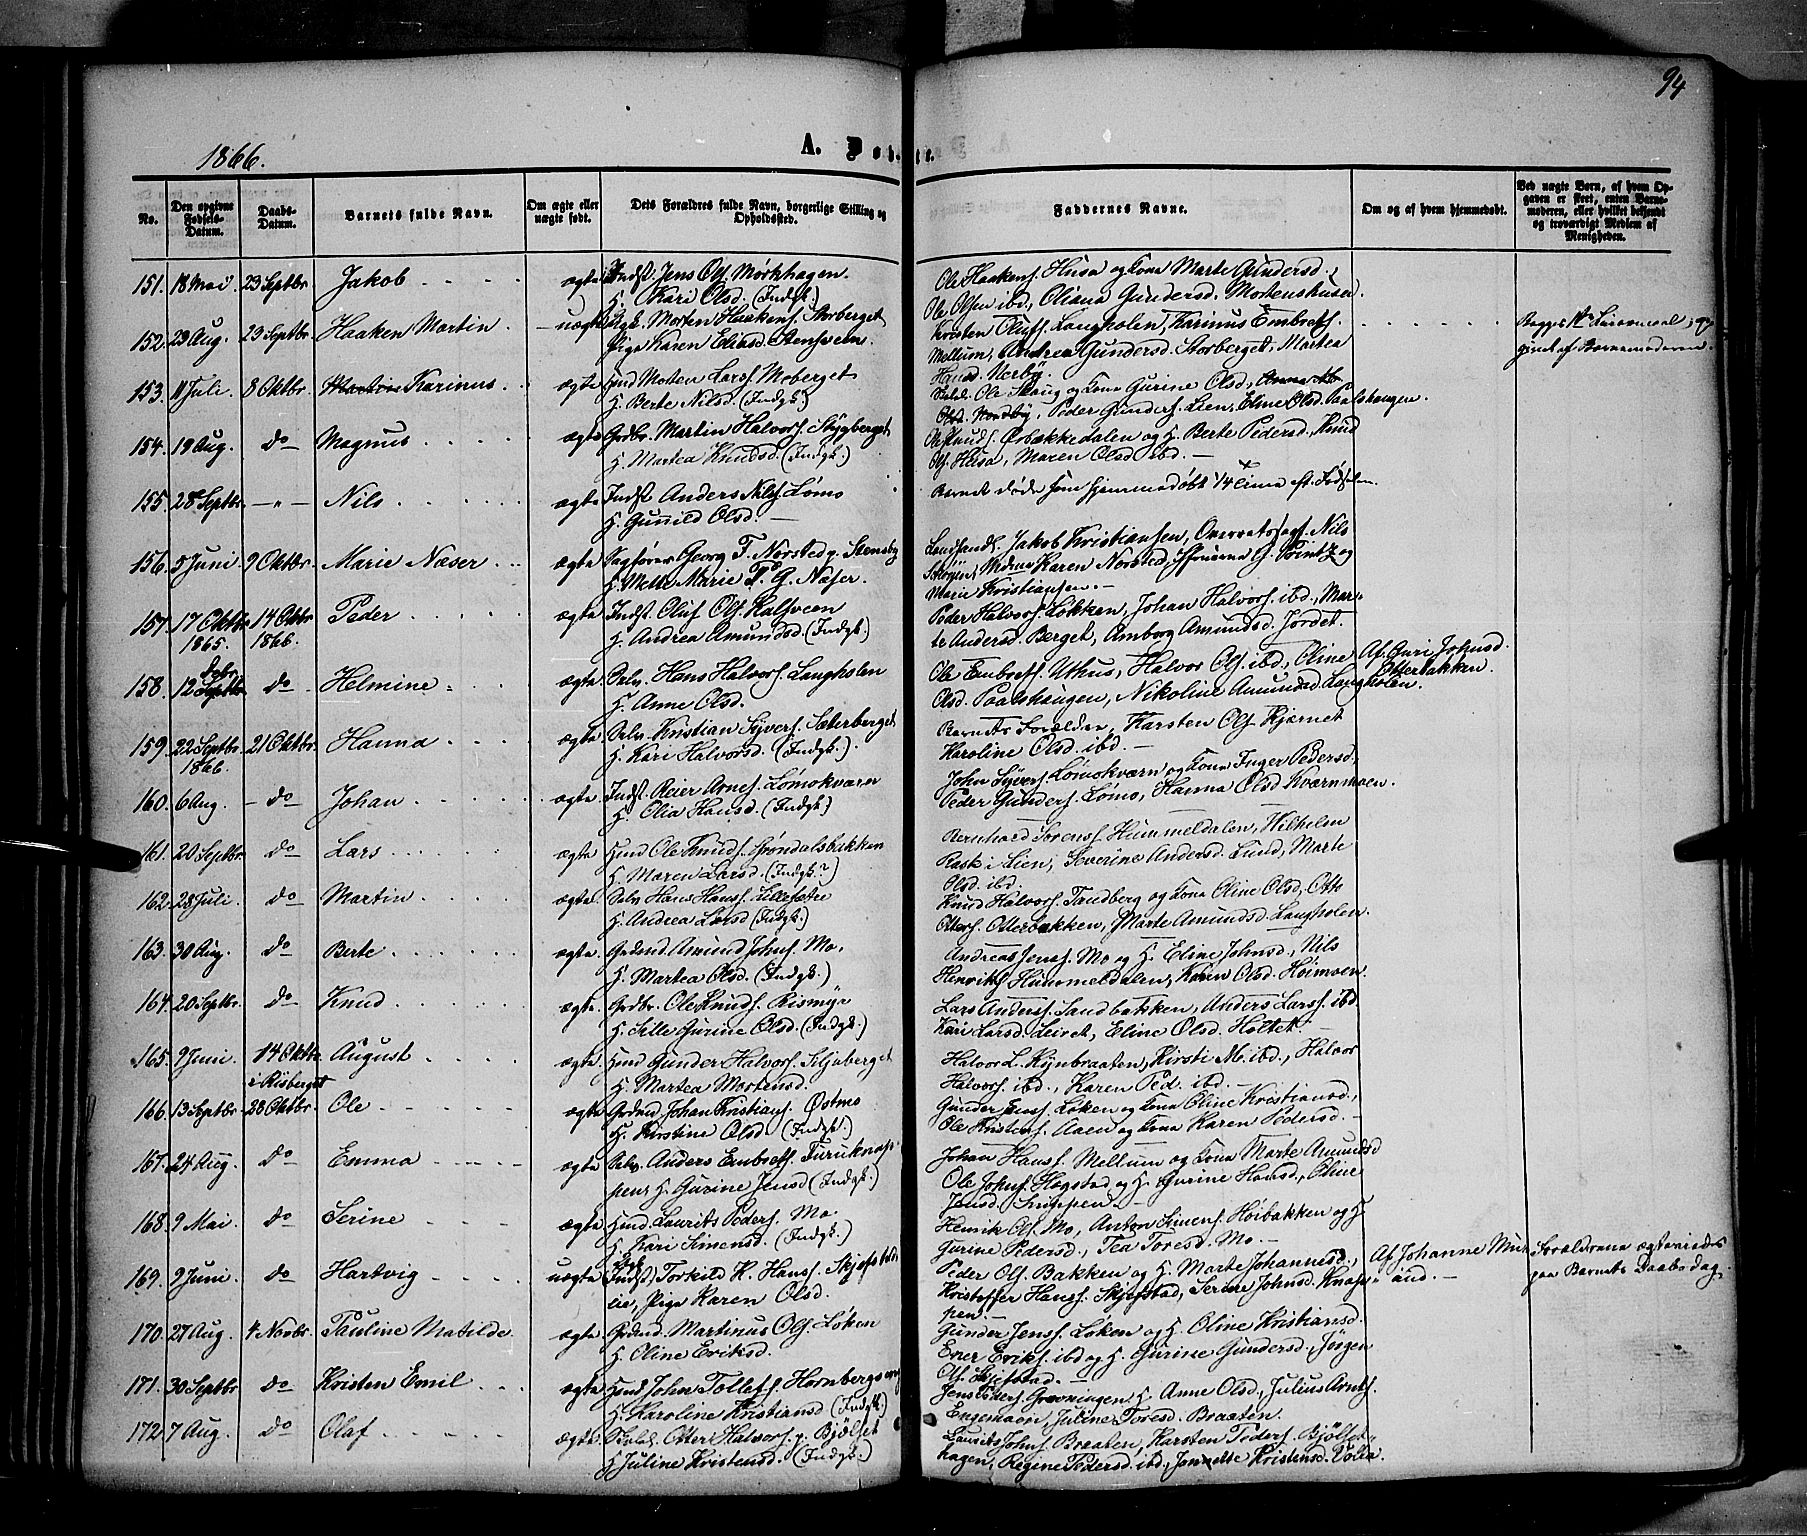 94
1866.
A. Døbte.
No.
Den opgivne Fødsels-Datum.
Daabs-Datum.
Barnets fulde Navn.
Om ægte eller uægte født.
Dets Forældres fulde Navn, borgerlige Stilling og Opholdssted.
Faddernes Navne.
Om og af hvem hjemmedøbt.
Ved uægte Børn, af hvem Opgaven er skeet, enten Barnemoderen, eller hvilket beslægtet og troværdigt Medlem af Menigheden.
151. 18 Mai 23 Septbr. Jakob ægte Indst. Jens Ols. Mørkhagen
H. Kari Olsd. (Indgk.)
Ole Haakens. Husa og Kona Marte Gundersd.
Ole Olsen ibd., Oliana Gundersd. Mortenshusen.
152. 23 Aug. 23 Septbr. Haaken Martin uægte Ugk. Morten Haakens. Storberget
Pige Karen Eliasd. Stensveen.
Kristen Olufs. Langholen, Karinus Embrets.
Mellum, Andrea Gundersd. Storberget, Martea
Hansd. Nerby.
Begges 1ste Leiermaal, opgivet af Barnemoderen.
153. 11 Juli. 8 Oktbr. Karinus. ægte Hmd Morten Larss. Moberget
H. Berte Nilsd. (Indgk.)
Ole Skaug og Kona Gurine Olsd.,
Olsd. Nordby, Peder Gunders. Lien, Eline Olsd. Paalshaugen.
154. 19 Aug. do Magnus ægte Grdbr. Martin Halvors. Stygberget
H. Martea Knudsd. (Indgk.)
Ørbækkedalen og H. Berte Pedersd., Knud
Ols. Husa, Maren Olsd. ibd.
155. 28 Septbr. — " — Nils ægte Indst Anders Nils. Lømo
H. Gunild Olsd.
Barnet døde som hjemmedøbt 1/4 Time eft. Fødselen.
156. 5 Juni 9 Oktbr. Marie Næser ægte Sagfører Georg F. Norsted p. Stensby
H. Mette Marie P. G. Næser.
Landhandl. Jakob Kristiansen, Overretssagf. Nils
Skøyen, Mdme Karen Norsted, Fruerne G. Printz og
Marie Kristiansen.
157. 17 Oktbr. 1865. 14 Oktbr. 1866. Peder ægte Indst Oluf Ols. Kalsveen
H. Andrea Amundsd. (Indgk.)
Peder Halvors. Løkken, Johan Halvors. ibd., Marte Andersd. Berget, Amborg Amundsd. Jordet.
158. 12 Septbr. do Helmine. ægte Selv. Hans Halvors. Langholen
H. Anne Olsd.
Ole Embrets. Uthus, Halvor Ols. ibd., Oline
Olsd. Paalshaugen, Nikoline Amundsd. Langholen.
Af Guri Johnsd. Otterbakken.
159. 22 Septbr. 1866. 21 Oktbr. Hanna ægte Selv. Kristian Syvers. Sæterberget
H. Kari Halvorsd. (Indgk.)
Barnets Forældre, Karsten Ols. Kjærnet
Karoline Olsd. ibd.
160. 6 Aug. do Johan ægte Indst. Reier Arnes. Lømokværn
H. Olia Hansd. (Indgk.)
John Syvers. Lømokværn og Kona Inger Pedersd.
Peder Gunders. Lømo, Hanna Olsd. Kværnmoen.
161. 20 Septbr. do Lars ægte Hmd Ole Knuds. Grøndalsbakken
H. Maren Larsd. (Indgk.?)
Bernhard Sørens. Hummeldalen, Vilhelm
Rask i Lien, Severine Andersd. Lund, Marte
Olsd. ibd.
162. 28 Juli. do Martin ægte Selv. Hans Hans. Lillesæter
H. Andrea Larsd. (Indgk.)
Knud Halvors. Tandberg og Kona Oline Olsd., Otto
Otters. Otterbakken, Marte Amundsd. Langholen.
163. 30 Aug. do Berte ægte Grdmd. Amund Johns. Mo,
H. Martea Olsd. (Indgk.)
Andreas Jenss. Mo og H. Eline Johnsd., Nils
Henriks. Hummeldalen, Karen Olsd. Heimoen.
164. 20 Septbr. do Knud ægte Grdbr. Ole Knuds. Rismyr
H. Sille Gurine Olsd. (Indgk.)
Lars Anders. Sandbakken, Anders Larss. ibd.
Kari Larsd. Leiret, Eline Olsd. Holtet.
165. 9 Juni. 14 Oktbr. i Risberget August ægte Hmd Gunder Halvors. Skjaberget
H. Martea Mortensd.
Halvor L. Kynbraaten, Kirsti M. ibd., Halvor
Halvors. ibd., Karen Ped. ibd.
166. 13 Septbr. 28 Oktbr. Ole ægte Grdmd Johan Kristians. Østmo
H. Kirstine Olsd. (Indgk.)
Gunder Jenss. Løken og Kona Oline Kristiansd.,
Ole Kristens. Aaen og Kona Karen Pedersd.
167. 24 Aug. do Emma ægte Selv. Anders Embrets. Furuknappen, H. Gurine Jensd (Indgk.)
Johan Hans. Mellum og Kona Marte Amundsd
Ole Johns. Hagstad og H. Gurine Hansd., Oline
Jensd. Snippen.
168. 9 Mai. do Serine ægte Hmd Laurits Peders. Mo
H. Kari Simensd. (Indgk.)
Henrik Ols. Mo, Anton Simens. Høibakken og H.
Gurine Pedersd., Tea Toresd. Mo.
169. 9 Juni. do Hartvig uægte Indst Torkild K. Hans. Skjefstadeie, Pige Karen Olsd.
Peder Ols. Bakken og H. Marte Johannesd.,
Kristoffer Hans. Skjefstad, Serine Johnsd. Knappen.
Af Johanne
Forældrene ægteviedes paa Barnets Daabsdag.
170. 27 Aug. 4 Novbr. Pauline Matilde ægte Grdmd. Martinus Ols. Løken
H. Oline Eriksd.
Gunder Jenss. Løken og H. Oline Kristiansd.
Ener Eriks. ibd og H. Gurine Gundersd., Jørgen
Ols. Skjefstad.
171. 30 Septbr. do Kristen Emil ægte Hmd John Tollefs. Hornbergseng
H. Karoline Kristiansd (Indgk.)
Jens Peders. Grøningen H. Anne Olsd., Julius Arnts.
Engemoen, Juline Toresd. Braaten.
172. 7 Aug. do Olaf ægte Otter Halvors. p. Bjølset
H. Juline Kristensd. (Indgk.)
Laurits Johns. Braaten, Karsten Peders. Bjølsethagen, Regine Pedersd. ibd., Jannette Kristensd. Volla.